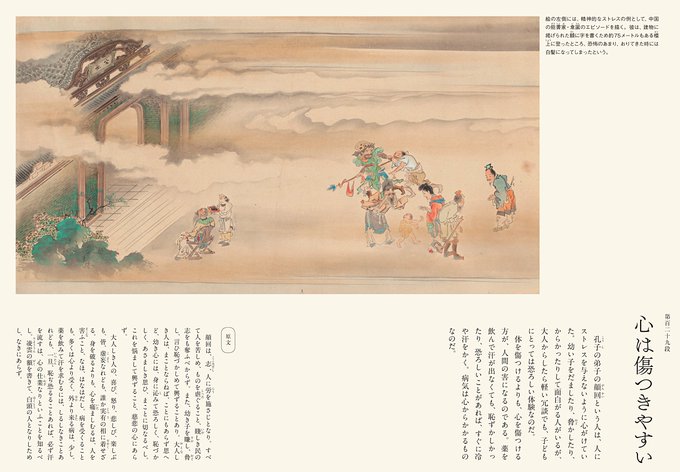 絵の左側には、精神的なストレスの例として、中国
の能書家・韋誕のエピソードを描く。彼は、建物に
掲げられた額に字を書くため約75メートルもある楼
上に登ったところ、恐怖のあまり、おりてきた時には
白髪になってしまったという。
第百二十九段
心は傷つきやすい
孔子の弟子の顔回という人は、人に
ストレスを与えないように心がけてい
た。幼い子をだましたり、脅かしたり、
からかったりして面白がる人がいるが、
大人からしたら軽い冗談でも、子ども
にとっては恐ろしい体験なのだ。
体を傷つけるよりも、心を傷つける
方が、人間の害になるのである。薬を
飲んで汗が出なくても、恥ずかしかっ
たり、恐ろしいことがあれば、すぐに冷
や汗をかく。病気は心からかかるもの
なのだ。
原文
顔回は、志、人に労を施さじとなり。すべ
て人を苦しめ、ものを虐ぐること、賤しき民の
志をも奪ふべからず。また、幼き子を賺し、脅
し、言ひ恥づかしめて興ずることあり。大人し
き人は、まことならねば、ことにもあらず思へ
ど、幼き心には、身に沁みて恐ろしく、恥づか
しく、あさましき思ひ、まことに切なるべし。
これを悩まして興ずること、慈悲の心にあら
ず。
大人しき人の、喜び、怒り、悲しび、楽しぶ
も、皆、虚妄なれども、誰か実有の相に著せざ
る。身を破るよりも、心を痛ましむるは、人を
害ふこと、なほ、はなはだし。病を受くること
も、多くは心より受く。外より来る病は、少し。
薬を飲みて汗を求むるには、しるしなきことあ
れども、一旦、恥ぢ恐るることあれば、必ず汗
を流すは、心の仕業なりといふことを知るべ
し。凌雲の額を書きて、白頭の人となりしため
し、なきにあらず。